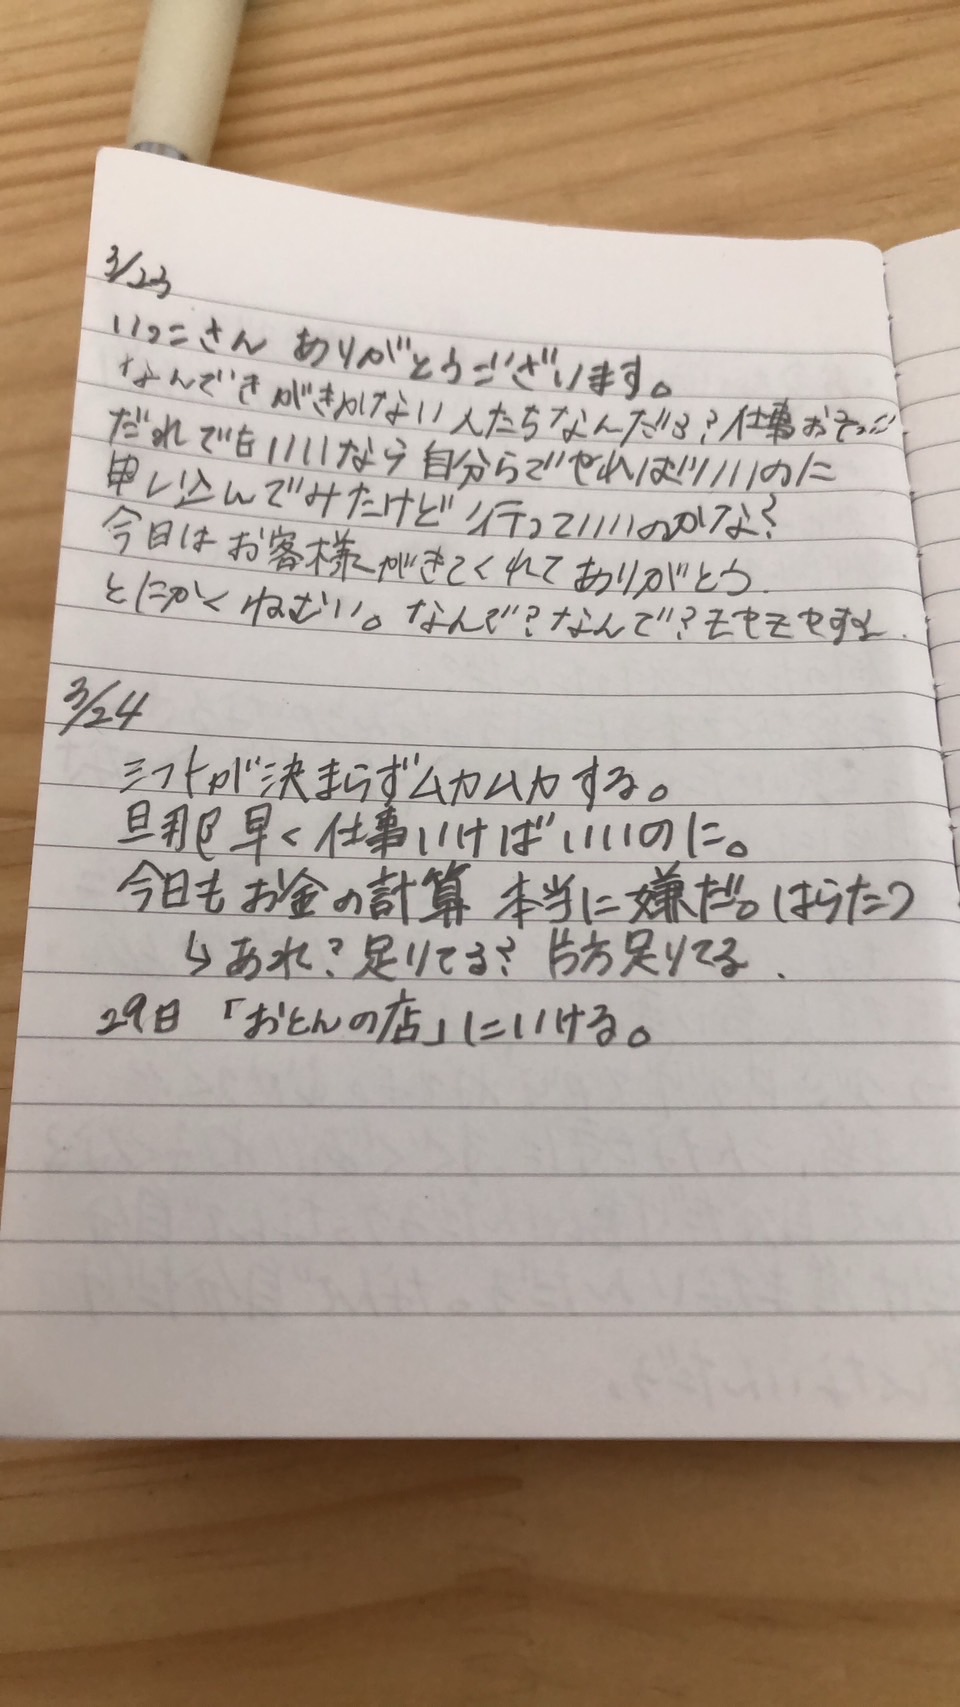 3/23
いっこさん ありがとうございます。
なんできがきかない人たちなんだろ?仕事おそっ
だれでもいいなら自分らでやればいいのに
申し込んでみたけど行っていいのかな?
今日はお客様がきてくれてありがとう
とにかくねむい。なんで?なんで?モヤモヤするよ
3/24
シフトが決まらずムカムカする。
旦那早く仕事いけばいいのに。
今日もお金の計算 本当に嫌だ。はらたつ
↳あれ?足りてる?片方足りてる.
29日「おとんの店」にいける。